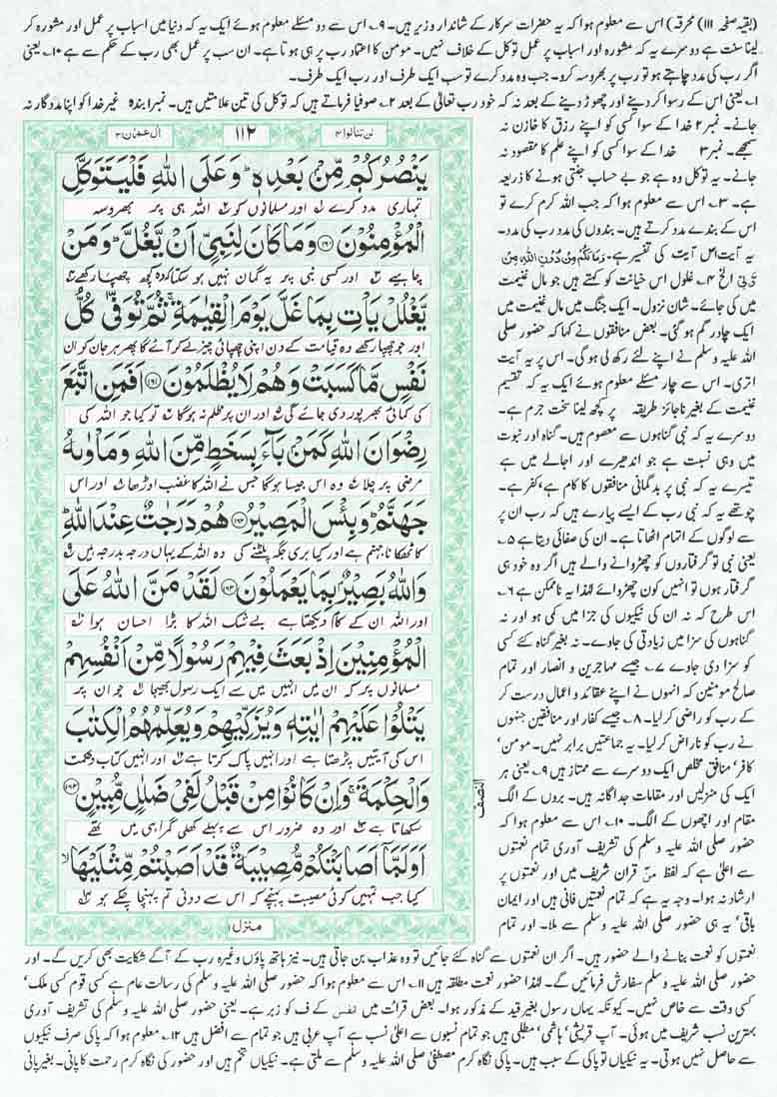 (بقیہ صفحہ ۱۱۱) محرقہ) اس سے معلوم ہوا کہ یہ حضرات سرکار کے شاندار وزیر ہیں۔ ۹۔ اس سے دو مسئلے معلوم ہوئے ایک یہ کہ دنیا میں اسباب پر عمل اور مشورہ کر
لینا سنت ہے دوسرے یہ کہ مشورہ اور اسباب پر عمل توکل کے خلاف نہیں۔ مومن کا اعتماد رب پر ہی ہوتا ہے۔ ان سب پر عمل بھی رب کے حکم سے ہے ۱۰۔ یعنی
اگر رب کی مدد چاہتے ہو تو رب پر بھروسہ کرو۔ جب وہ مدد کرے تو سب ایک طرف اور رب ایک طرف۔
۱۔ یعنی اس کے رسوا کر دینے اور چھوڑ دینے کے بعد نہ کہ خود رب تعالیٰ کے بعد ۲۔ صوفیا فرماتے ہیں کہ توکل کی تین علامتیں ہیں۔ نمبر۱ بندہ غیر خدا کو اپنا مددگار نہ
جانے۔ نمبر ۲ خدا کے سوا کسی کو اپنے رزق کا خازن نہ
سمجھے۔ نمبر ۳ خدا کے سوا کسی کو اپنے علم کا مقصود نہ
جانے۔ یہ توکل وہ ہے جو بے حساب جنتی ہونے کا ذریعہ
ہے۔ ۳۔ اس سے معلوم ہوا کہ جب اللہ کرم کرے تو
اس کے بندے مدد کرتے ہیں۔ بندوں کی مدد رب کی مدد۔
یہ آیت اس آیت کی تفسیر ہے۔ وَمَا لَكُمْ مِنْ دُوْنِ اللهِ مِنْ
وَّلِيٍّ الخ ۴۔ غلول اس خیانت کو کہتے ہیں جو مال غنیمت
میں کی جائے۔ شان نزول۔ ایک جنگ میں مال غنیمت میں
ایک چادر گم ہو گئی۔ بعض منافقوں نے کہا کہ حضور صلی
اللہ علیہ وسلم نے اپنے لئے رکھ لی ہو گی۔ اس پر یہ آیت
اتری۔ اس سے چار مسئلے معلوم ہوئے ایک یہ کہ تقسیم
غنیمت کے بغیر ناجائز طریقہ پر کچھ لینا سخت جرم ہے۔
دوسرے یہ کہ نبی گناہوں سے معصوم ہیں۔ گناہ اور نبوت
میں وہی نسبت ہے جو اندھیرے اور اجالے میں ہے
تیسرے یہ کہ نبی پر بدگمانی منافقوں کا کام ہے، کفر ہے۔
چوتھے یہ کہ نبی رب کے ایسے پیارے ہیں کہ رب ان پر
سے لوگوں کے اتہام اٹھاتا ہے۔ ان کی صفائی دیتا ہے ۵۔
یعنی نبی تو گرفتاروں کو چھڑوانے والے ہیں اگر وہ خود ہی
گرفتار ہوں تو انہیں کون چھڑوائے لہٰذا یہ ناممکن ہے ۶۔
اس طرح کہ نہ ان کی نیکیوں کی جزا میں کمی ہو اور نہ
گناہوں کی سزا میں زیادتی کی جاوے۔ نہ بغیر گناہ کئے کسی
کو سزا دی جاوے ۷۔ جیسے مہاجرین و انصار اور تمام
صالح مومنین کہ انہوں نے اپنے عقائد و اعمال درست کر
کے رب کو راضی کر لیا۔ ۸۔ جیسے کفار اور منافقین جنہوں
نے رب کو ناراض کر لیا۔ یہ جماعتیں برابر نہیں۔ مومن'
کافر' منافق مخلص ایک دوسرے سے ممتاز ہیں ۹۔ یعنی ہر
ایک کی منزلیں اور مقامات جداگانہ ہیں۔ بروں کے الگ
مقام اور اچھوں کے الگ۔ ۱۰۔ اس سے معلوم ہوا کہ
حضور صلی اللہ علیہ وسلم کی تشریف آوری تمام نعمتوں
سے اعلیٰ ہے کہ لفظ مَنّ قران شریف میں اور نعمتوں پر
ارشاد نہ ہوا۔ وجہ یہ ہے کہ تمام نعمتیں فانی ہیں اور ایمان
باقی' یہ ہی حضور صلی اللہ علیہ وسلم سے ملا۔ اور تمام
ال عمران ۳
۱۱۲
لن تنالوا ۴
يَنْصُرُكُمْ مِّنْ بَعْدِهٖ ؕ وَعَلَى اللّٰهِ فَلْيَتَوَكَّلِ
تمہاری مدد کرے ۱ اور مسلمانوں کو ۲ اللہ ہی پر بھروسہ
الْمُؤْمِنُوْنَ ﴿۱۶۰﴾ وَمَا كَانَ لِنَبِيٍّ اَنْ يَّغُلَّ ؕ وَمَنْ
چاہیے ۳ اور کسی نبی پر یہ گمان نہیں ہو سکتا کہ وہ کچھ چھپا رکھے ۴
يَّغْلُلْ يَاْتِ بِمَا غَلَّ يَوْمَ الْقِيٰمَةِ ۚ ثُمَّ تُوَفّٰى كُلُّ
اور جو چھپا رکھے وہ قیامت کے دن اپنی چھپائی چیز لے کر آئے گا پھر ہر جان کو ان
نَفْسٍ مَّا كَسَبَتْ وَهُمْ لَا يُظْلَمُوْنَ ﴿۱۶۱﴾ اَفَمَنِ اتَّبَعَ
کی کمائی بھرپور دی جائے گی ۵ اور ان پر ظلم نہ ہوگا ۶ تو کیا جو اللہ کی
رِضْوَانَ اللّٰهِ كَمَنْۢ بَآءَ بِسَخَطٍ مِّنَ اللّٰهِ وَمَاْوٰىهُ
مرضی پر چلا ۷ وہ اس جیسا ہوگا جس نے اللہ کا غضب اوڑھا ۸ اور اس
جَهَنَّمُ ؕ وَبِئْسَ الْمَصِيْرُ ﴿۱۶۲﴾ هُمْ دَرَجٰتٌ عِنْدَ اللّٰهِ ؕ
کا ٹھکانا جہنم ہے اور کیا بری جگہ پلٹنے کی وہ اللہ کے یہاں درجہ بدرجہ ہیں ۹
وَاللّٰهُ بَصِيْرٌۢ بِمَا يَعْمَلُوْنَ ﴿۱۶۳﴾ لَقَدْ مَنَّ اللّٰهُ عَلَى
اور اللہ ان کے کام دیکھتا ہے بے شک اللہ کا بڑا احسان ہوا ۱۰
الْمُؤْمِنِيْنَ اِذْ بَعَثَ فِيْهِمْ رَسُوْلًا مِّنْ اَنْفُسِهِمْ
مسلمانوں پر کہ ان میں انہیں میں سے ایک رسول بھیجا ۱۱ جو ان پر
يَتْلُوْا عَلَيْهِمْ اٰيٰتِهٖ وَيُزَكِّيْهِمْ وَيُعَلِّمُهُمُ الْكِتٰبَ
اس کی آیتیں پڑھتا ہے اور انہیں پاک کرتا ہے ۱۲ اور انہیں کتاب و حکمت
وَالْحِكْمَةَ ۚ وَاِنْ كَانُوْا مِنْ قَبْلُ لَفِيْ ضَلٰلٍ مُّبِيْنٍ ﴿۱۶۴﴾
سکھاتا ہے اور وہ ضرور اس سے پہلے کھلی گمراہی میں تھے
اَوَلَمَّاۤ اَصَابَتْكُمْ مُّصِيْبَةٌ قَدْ اَصَبْتُمْ مِّثْلَيْهَا ۙ
کیا جب تمہیں کوئی مصیبت پہنچے کہ اس سے دونی تم پہنچا چکے ہو
النصف
منزل ۱
نعمتوں کو نعمت بنانے والے حضور ہیں۔ اگر ان نعمتوں سے گناہ کئے جائیں تو وہ عذاب بن جاتی ہیں۔ نیز ہاتھ پاؤں وغیرہ رب کے آگے شکایت بھی کریں گے۔ اور
حضور صلی اللہ علیہ وسلم سفارش فرمائیں گے۔ لہٰذا حضور نعمت مطلقہ ہیں ۱۱۔ اس سے معلوم ہوا کہ حضور صلی اللہ علیہ وسلم کی رسالت عام ہے کسی قوم کسی ملک'
کسی وقت سے خاص نہیں۔ کیونکہ یہاں رسول بغیر قید کے مذکور ہوا۔ بعض قرائت میں انفس کے ف کو زبر ہے۔ یعنی حضور صلی اللہ علیہ وسلم کی تشریف آوری
بہترین نسب شریف میں ہوئی۔ آپ قریشی' ہاشمی' مطلبی ہیں جو تمام نسبوں سے اعلیٰ نسب ہے آپ عربی ہیں جو تمام سے افضل ہیں ۱۲۔ معلوم ہوا کہ پاکی صرف نیکیوں
سے حاصل نہیں ہوتی۔ یہ نیکیاں تو پاکی کے سبب ہیں۔ پاکی نگاہ کرم مصطفیٰ صلی اللہ علیہ وسلم سے ملتی ہے۔ نیکیاں تخم ہیں اور حضور کی نگاہ کرم رحمت کا پانی۔ بغیر پانی